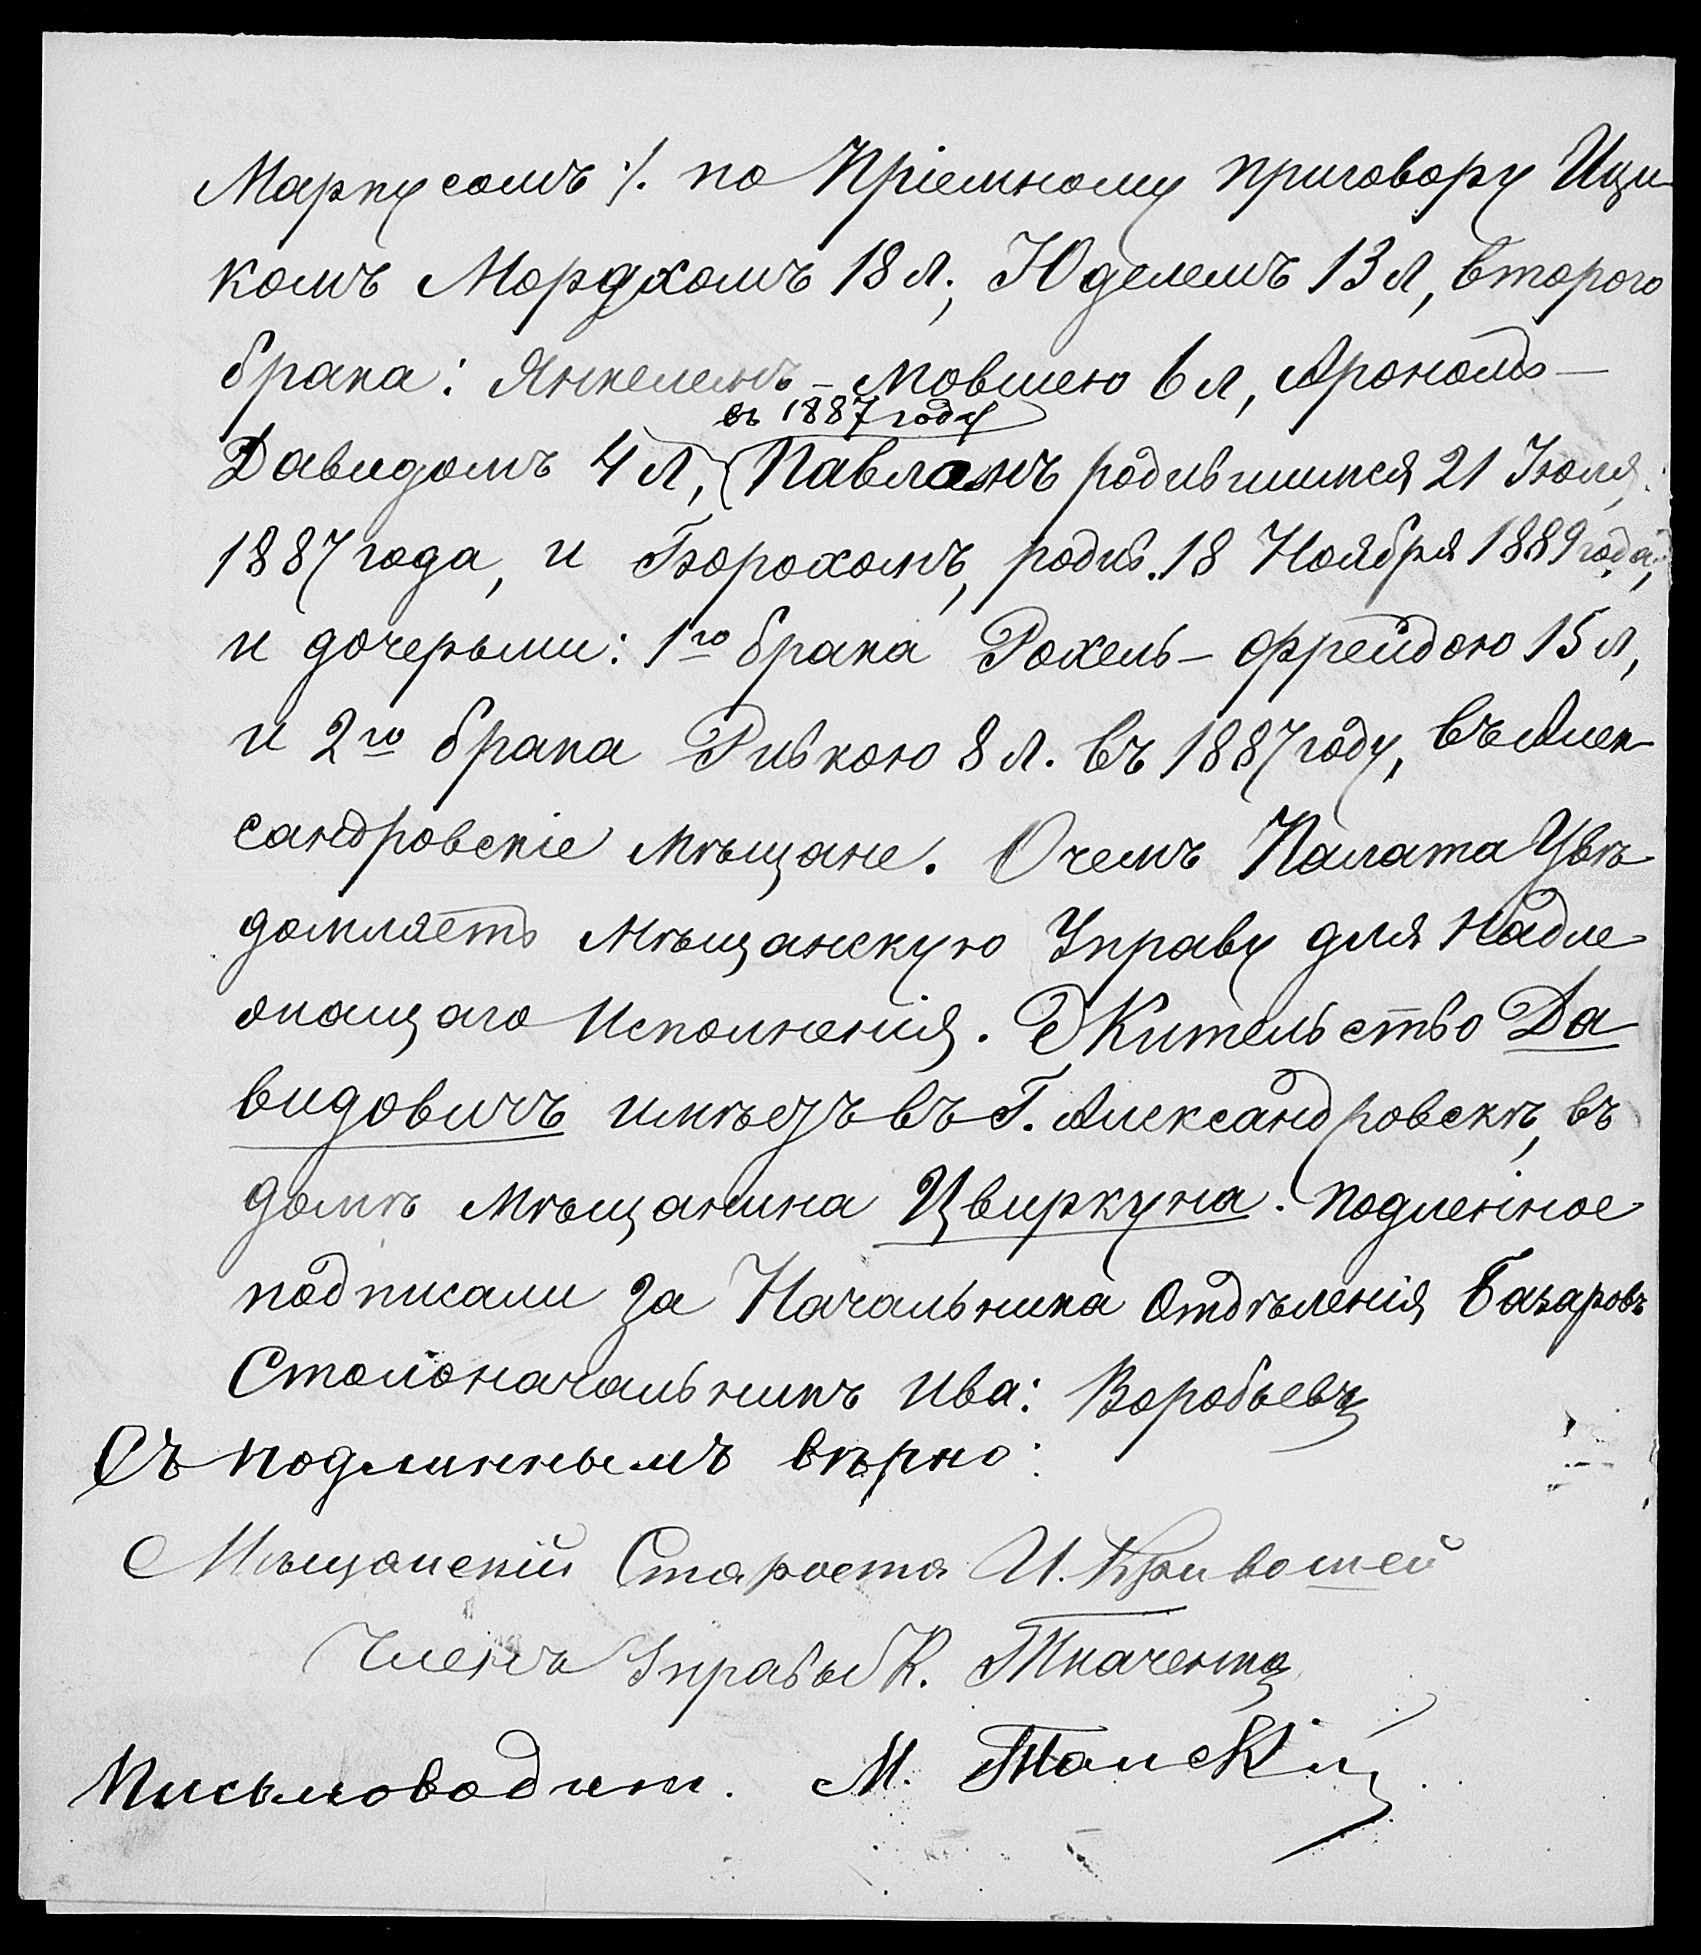 Маркусомъ ⁒ по Пріемному приговору Ици-
комъ Мордхомъ 18 л., Юделемъ 13 л, второго
брака: Янкелемъ - Мовшею 6 л, Арономъ —
въ 1887 году
Давидомъ 4 л, Павломъ родившимся 21 Іюля
1887 года, и Борохомъ, родив. 18 Ноября 1889 года,
и дочерьми: 1го брака Рохель - Фрейдою 15 л,
и 2го брака Ривкою 8 л. въ 1887 году, въ Алек-
сандровскіе мѣщане. О чемъ Палата Увѣ
домляетъ Мѣщанскую Управу для Надле
жащаго Исполненія. Жительство Да
видовичъ имѣетъ въ Г. Александровскѣ, въ
домѣ Мѣщанина Цвиркуна. Подленное
подписали За Начальника Отдѣленія Базаровъ
Столоначальникъ Ива: Воробьевъ
Съ подлиннымъ вѣрно:
Мѣщанскій Староста И. Кривошей
Членъ Управы К. Ткаченко
Письмоводит. М. Томскій